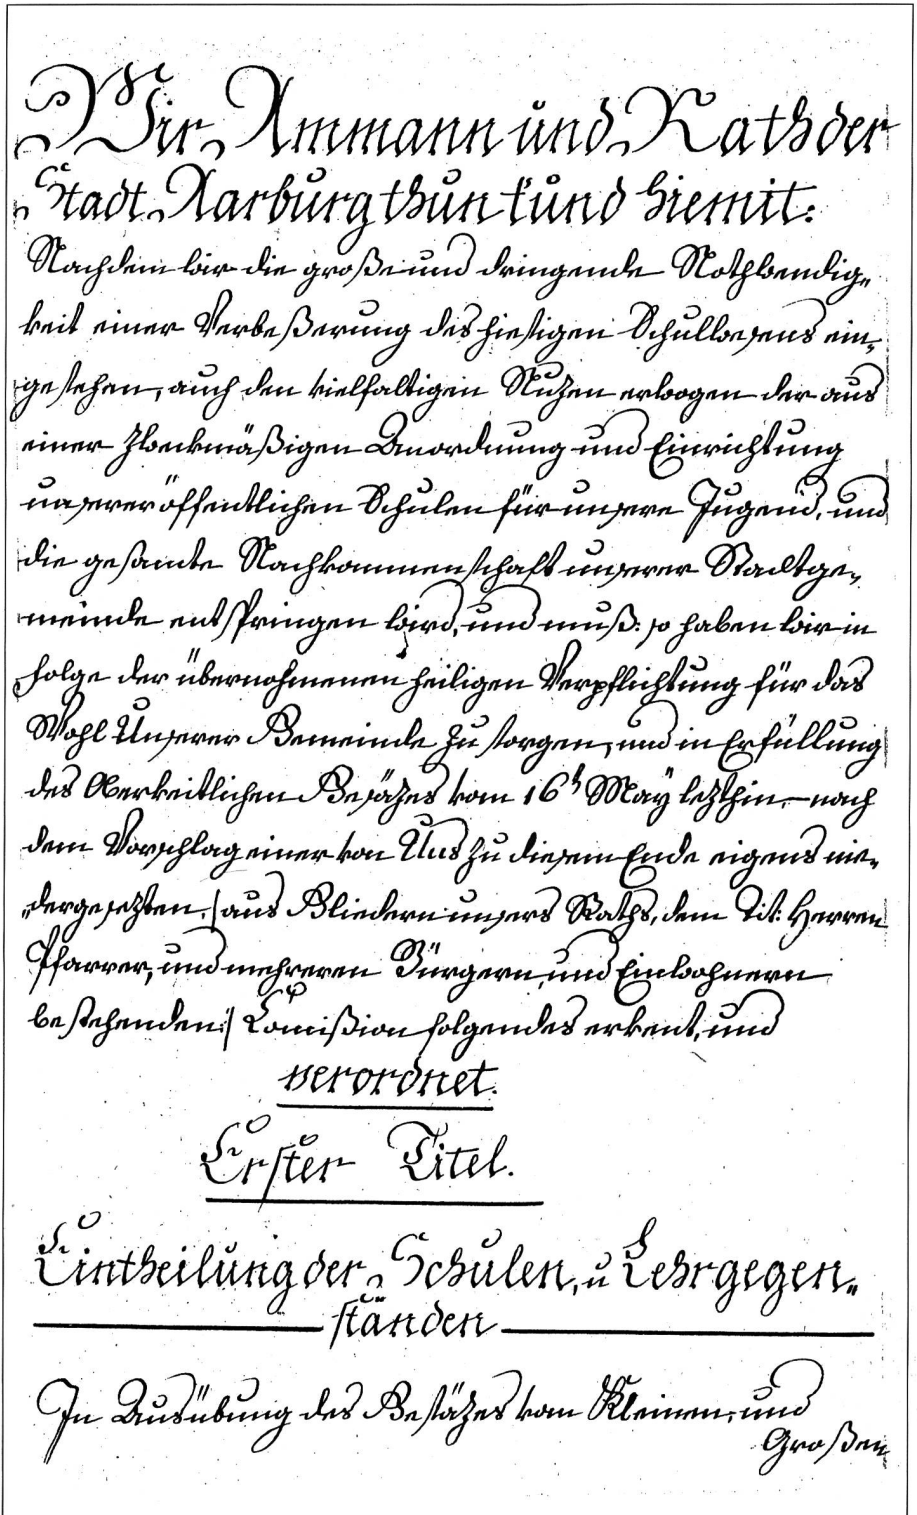 Wir Ammann und Rath der
Stadt Aarburg thun kund hiemit:
Nachdem wir die große und dringende Nothwendig„
keit einer Verbeßerung des hiesigen Schulwesens ein„
gesehen, auch den vielfaltigen Nuzen erwogen der aus
einer zweckmäßigen Anordnung und Einrichtung
unserer öffentlichen Schulen für unsere Jugend, und
die gesamte Nachkommenschaft unserer Stadtge„
meinde entspringen wird, und muß: so haben wir in
folge der übernohmenen heiligen Verpflichtung für das
Wohl Unserer Gemeinde zu sorgen, und in Erfüllung
des Oberkeitlichen Gesäzes vom 16t May lezthin, nach
dem Vorschlag einer von Uns zu diesem Ende eigens nie„
„dergesezten /: aus Gliedern unsers Raths, dem Tit: Herren
Pfarrer, und mehreren Bürgern, und Einwohnern
bestehenden :/ Comißion folgendes erkent, und
verordnet.
Erster Titel.
Eintheilung der Schulen, u Lehrgegen„
ständen
In Ausübung des Gesäzes vom Kleinen, und
Großen